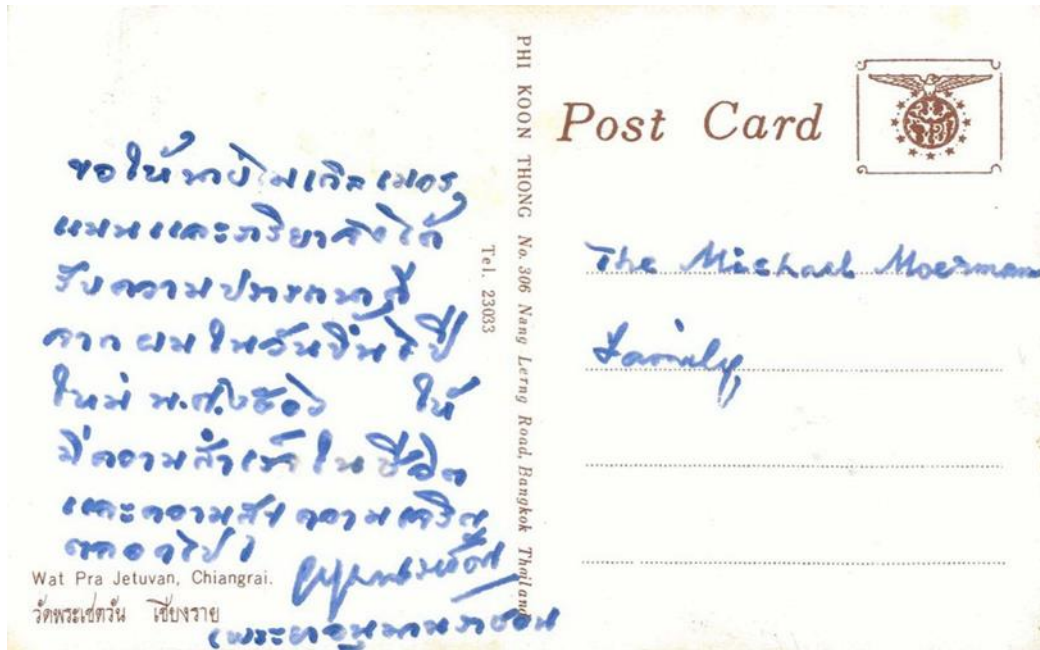 ขอให้นายไมเกิล เมอร์
แมนและภริยาจงได้
รับความปรารถนาดี
จากผมในวันขึ้นปี
ใหม่ พ.ศ. ให้
มีความสำเร็จในชีวิต
และความสุขความเจริญ
ตลอดไป
Wat Pra Jetuvan, Chiangrai.
วัดพระเชตวัน เชียงราย
(พระยาอนุมานราชธน
PHI KOON THONG No. 306 Nang Lerng Road, Bangkok Thailand
Tel. 23033
Post Card
The Michael Moerman
Family,